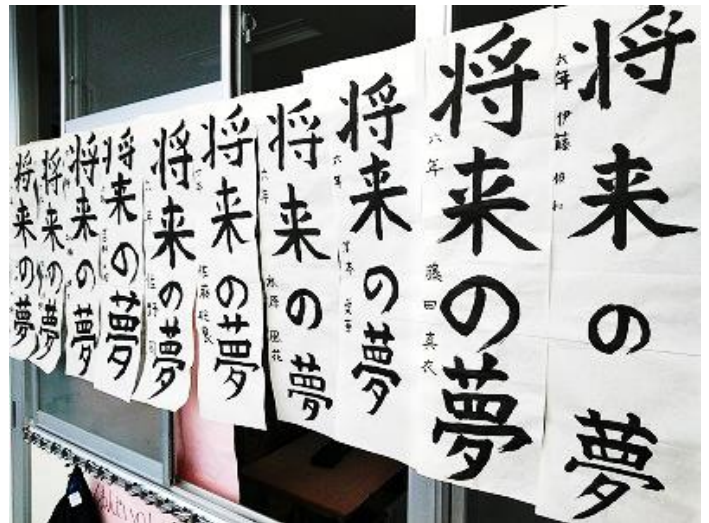 将来の夢
六年 伊藤
将来の夢
六年 藤田真衣
将来の夢
六年
将来の夢
六年 水原風花
将来の夢
佐藤
将来の夢
六年 佐野
将来の夢
将来の夢
将来の夢
将来の夢